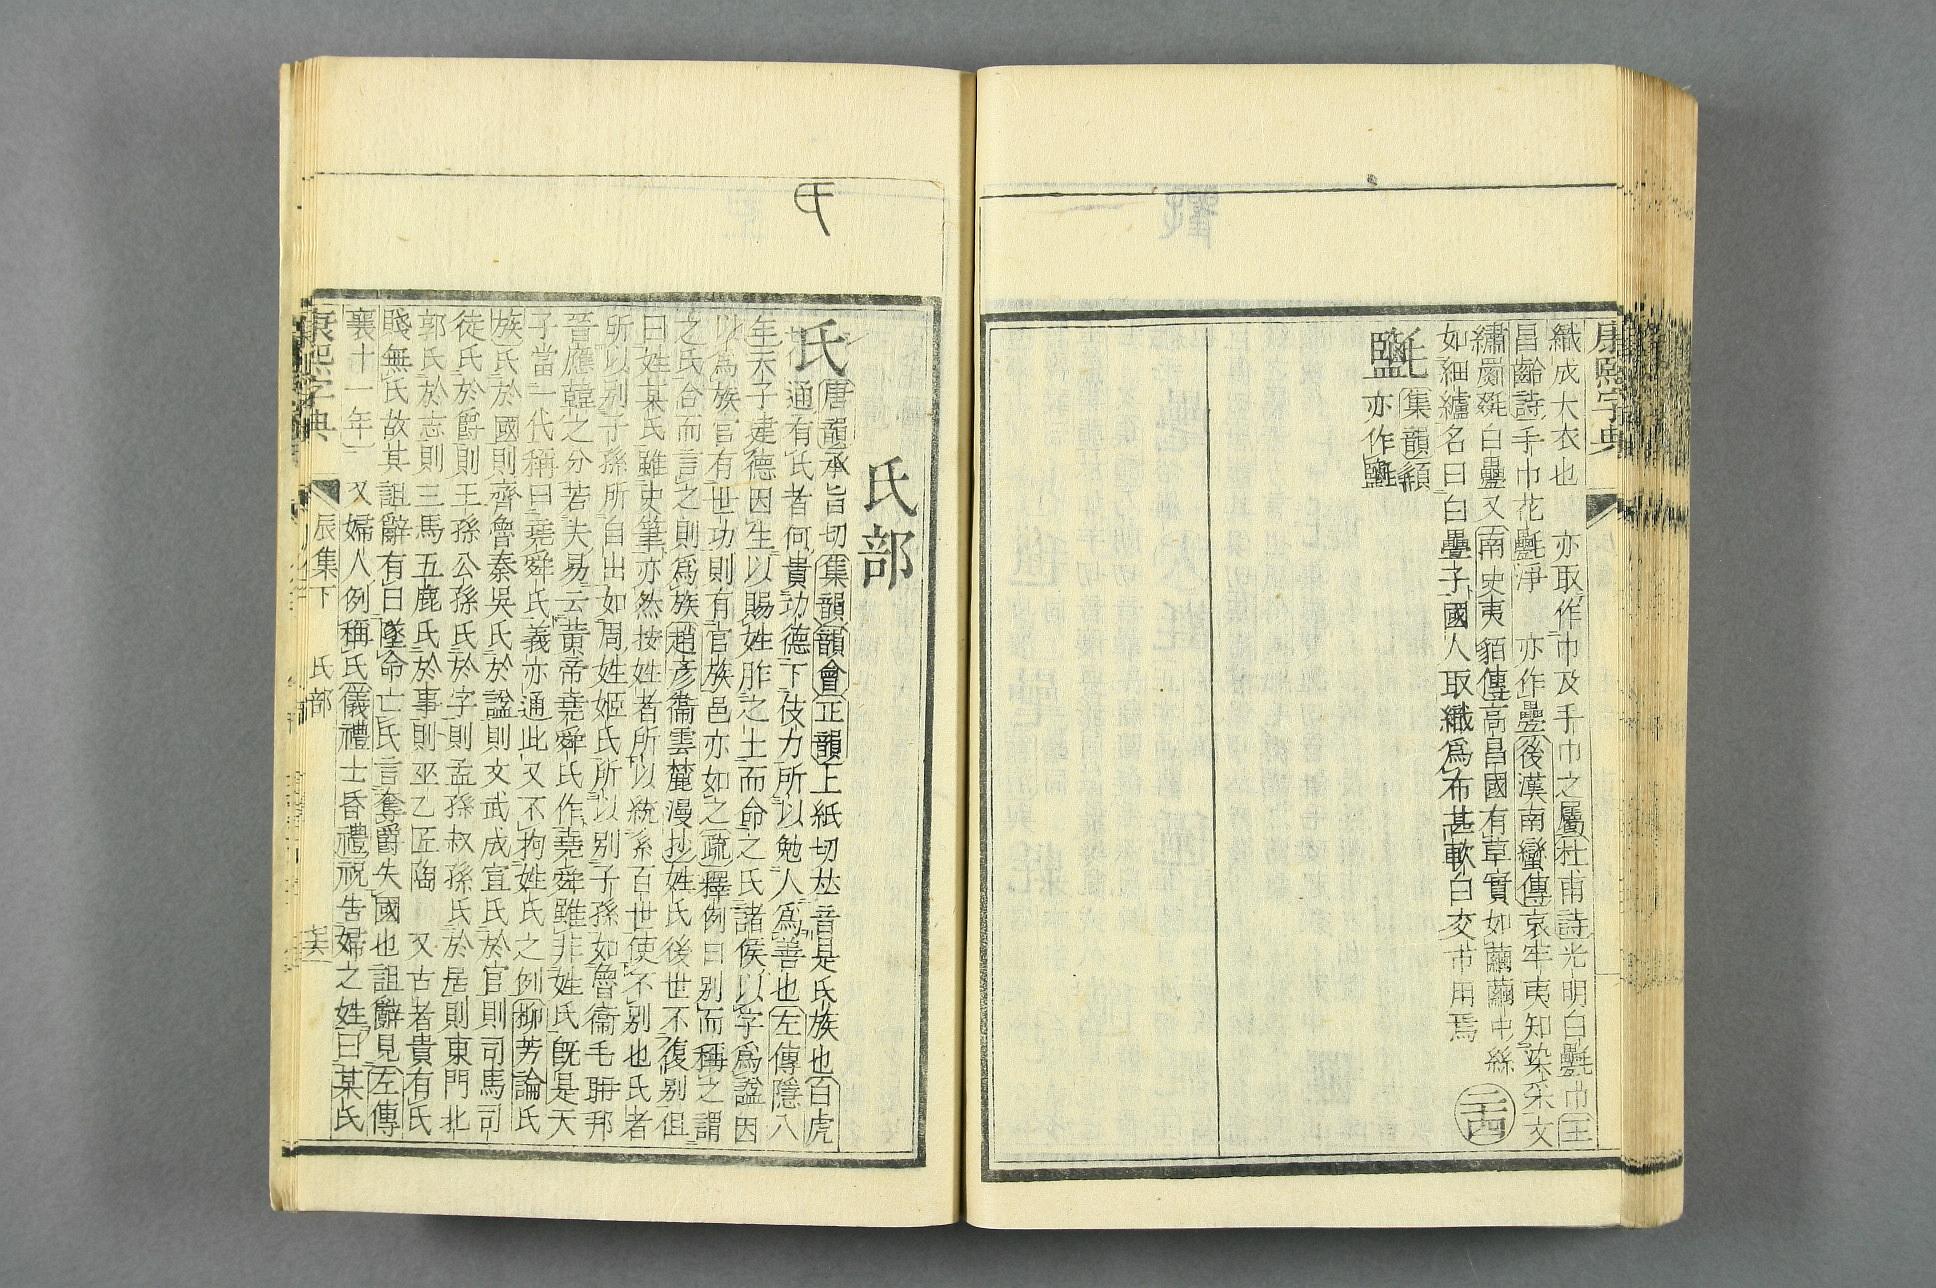 康熙字典
織成大衣也 亦取作巾及手巾之屬杜甫詩光明白㲲巾王
昌齡詩手巾花㲲淨 亦作疊後漢南蠻傳哀牢夷知染采文
繡罽毲白疊又南史夷貊傳高昌國有草實如繭繭中絲
如細纑名曰白疊子國人取織爲布甚軟白交市用焉
二十四
集韻
亦作
氏部
氏
唐韻承旨切集韻韻會正韻上紙切𠀤音是氏族也白虎
通有氏者何貴功德下伎力所以勉人爲善也左傳隱八
年天子建德因生以賜姓胙之土而命之氏諸侯以字爲諡因
以爲族官有世功則有官族邑亦如之疏釋例曰别而稱之謂
之氏合而言之則爲族趙彥衞雲麓漫抄姓氏後世不復别但
曰姓某氏雖史筆亦然按姓者所以統系百世使不别也氏者
所以别子孫所自出如周姓姬氏所以别子孫如魯衞毛聃邦
晉應韓之分若夫易云黃帝堯舜氏作堯舜雖非姓氏旣是天
子當一代稱曰堯舜氏義亦通此又不拘姓氏之例柳芳論氏
族氏於國則齊魯秦吳氏於諡則文武成宣氏於官則司馬司
徒氏於爵則王孫公孫氏於字則孟孫叔孫氏於居則東門北
郭氏於志則三馬五鹿氏於事則巫乙匠陶 又古者貴有氏
賤無氏故其詛辭有曰墜命亡氏言奪爵失國也詛辭見左傳
襄十一年 又婦人例稱氏儀禮士昏禮祝告婦之姓曰某氏
康熙字典 辰集下 氏部